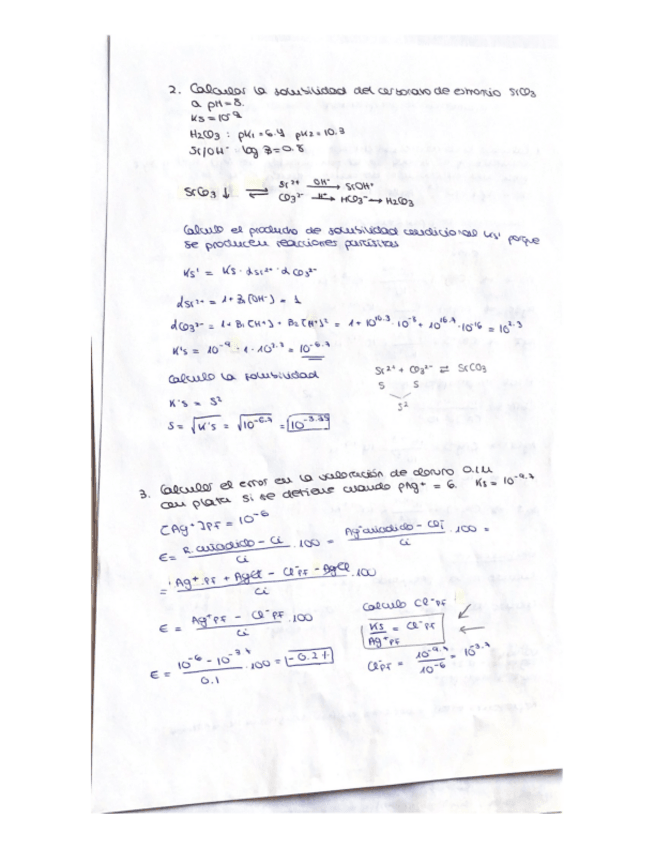 2. Calcular la solubilidad del carbonato de estroncio SrCO3
a pH=8.
Ks=10⁻⁹
H2CO3 : pK1=6.4 pK2=10.3
Sr/OH⁻ log β=0.8
SrCO3 ↓ ⇌ Sr²⁺ OH⁻→ SrOH⁺
CO3²⁻ H⁺→ HCO3⁻ → H2CO3
Calculo el producto de solubilidad condicional Ks' porque
se producen reacciones parásitas
Ks' = Ks · αSr²⁺ · αCO3²⁻
αSr²⁺ = 1+ B1 [OH⁻] = 1
αCO3²⁻ = 1+ B1 [H+] + B2 [H+]² = 1 + 10^10.3 · 10⁻⁸ + 10^16.7 · 10⁻¹⁶ = 10^2.3
K's = 10⁻⁹ · 1 · 10^2.3 = 10^-6.7
Calculo la solubilidad
Sr²⁺ + CO3²⁻ ⇌ SrCO3
S S
S²
K's = S²
S = √K's = √10^-6.7 = 10^-3.35
3. Calcular el error en la valoración de cloruro 0.1M
con plata si se detiene cuando pAg⁺ = 6. Ks = 10^-9.7
[Ag⁺]pf = 10⁻⁶
E = R. añadido - Ci / Ci · 100 = Ag⁺añadido - Ci / Ci · 100 =
= Ag⁺pf + AgCl - Cl⁻pf - AgCl / Ci · 100
E = Ag⁺pf - Cl⁻pf / Ci · 100
Calculo Cl⁻pf
Ks / Ag⁺pf = Cl⁻pf
Cl⁻pf = 10^-9.7 / 10⁻⁶ = 10^-3.7
E = 10⁻⁶ - 10^-3.7 / 0.1 · 100 = -0.2%